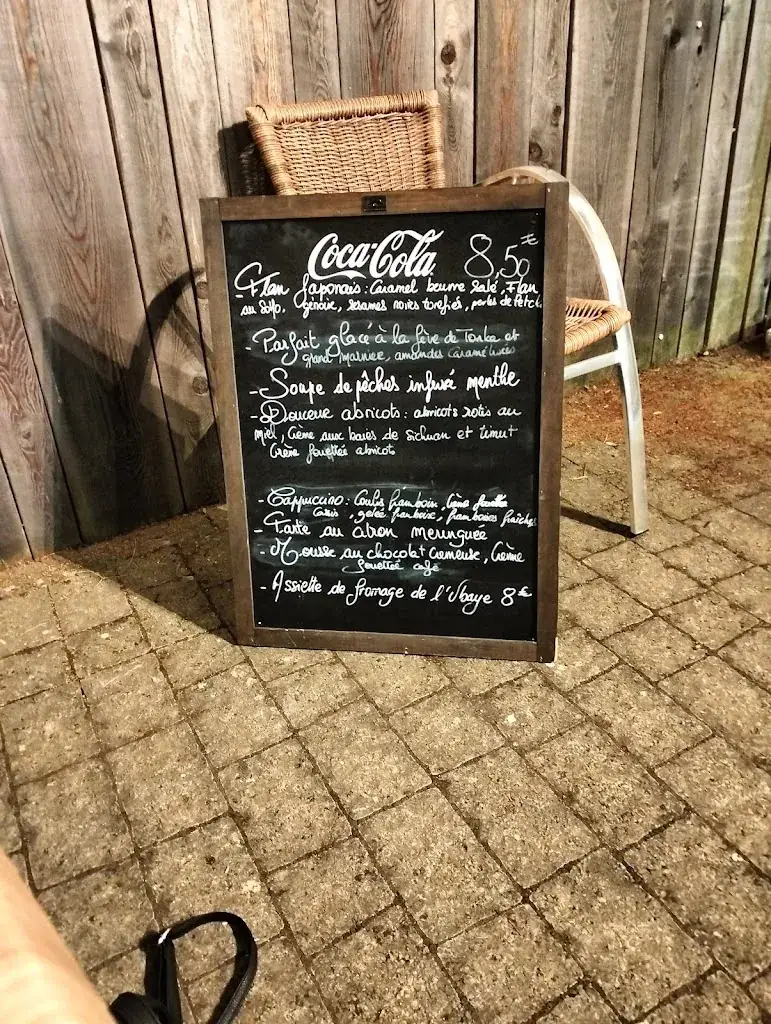 Coca-Cola 8,50 €
- Flan Japonais : Caramel beurre salé, Flan
au Soja, génoise, sesames noires torefiés, perles de Pétch
- Parfait glacé à la fève de Tonka et
grand marnier, amandes caramélisées
- Soupe de pêches infusé menthe
- Douceur abricots : abricots rotis au
miel, Crème aux baies de sichuan et timut
Crème fouettée abricots
- Cappuccino : Coulis framboise, Crème fouettée
Cassis, gelée framboise, framboises fraîches
- Tarte au citron meringuée
- Mousse au chocolat Cremeuse, Crème
fouettée café
- Assiette de fromage de l'Ubaye 8 €